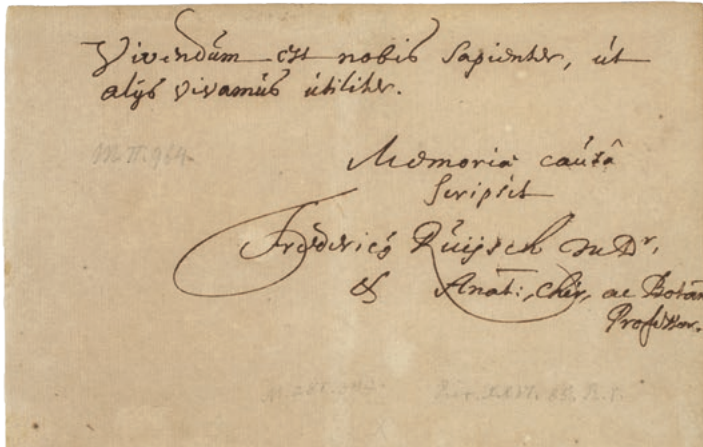 Vivendum est nobis sapienter, út
alijs vivamús útiliter.
M.II.964.
Memoria caúsâ
scripsit
Fredericús Ruijsch M Dr.
& Anat: Chir, ac Botan
Professor.